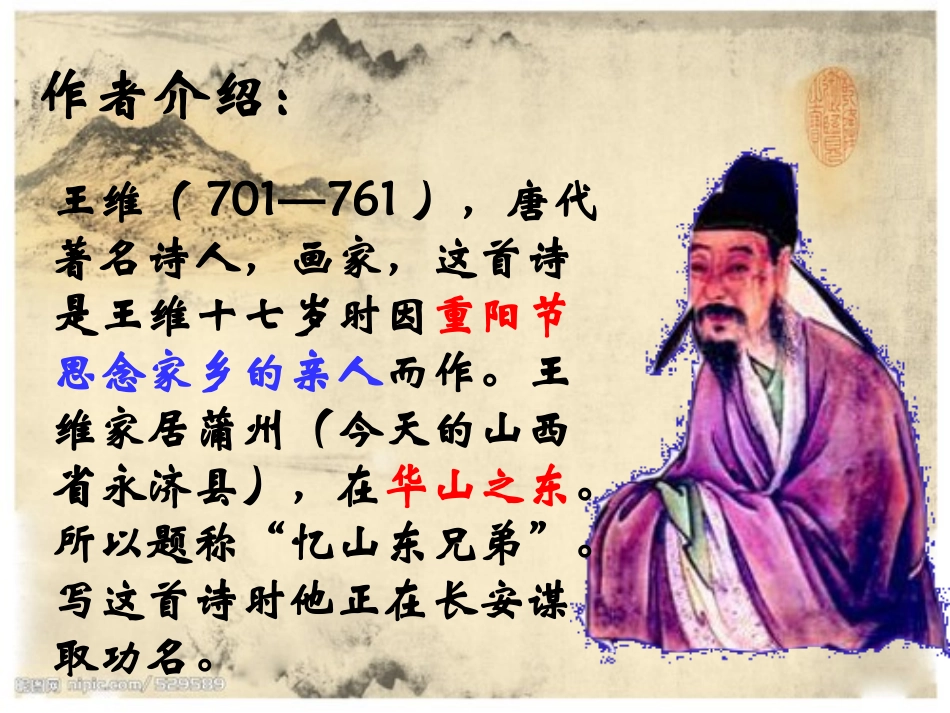 作者介绍：
王维（701—761），唐代
著名诗人，画家，这首诗
是王维十七岁时因重阳节
思念家乡的亲人而作。王
维家居蒲州（今天的山西
省永济县），在华山之东。
所以题称“忆山东兄弟”。
写这首诗时他正在长安谋
取功名。
昵图网 nipic.com/529589